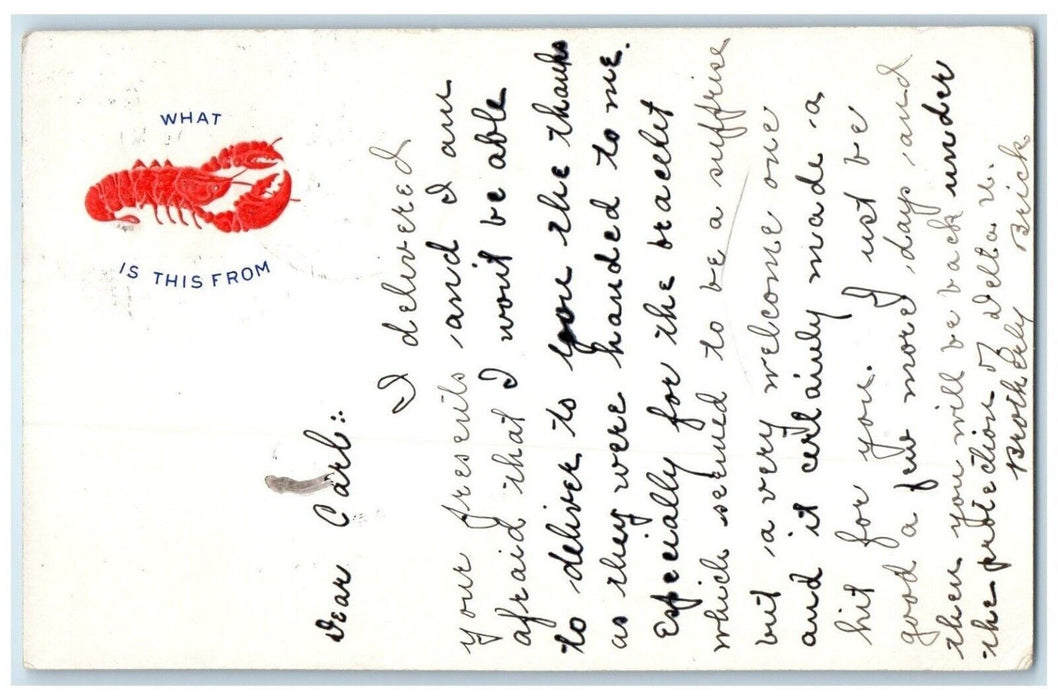 WHAT
IS THIS FROM
Dear Carl:.
I delivered
your presents and I am
afraid that I won't be able
to deliver to you the thanks
as they were handed to me.
Especially for the bracelet
which seemed to be a suprise
but a very welcome one
and it certainly made a
hit for you. I ust be
good a few more days and
then you will be back under
the protection of Delta U.
Brotherly Brick